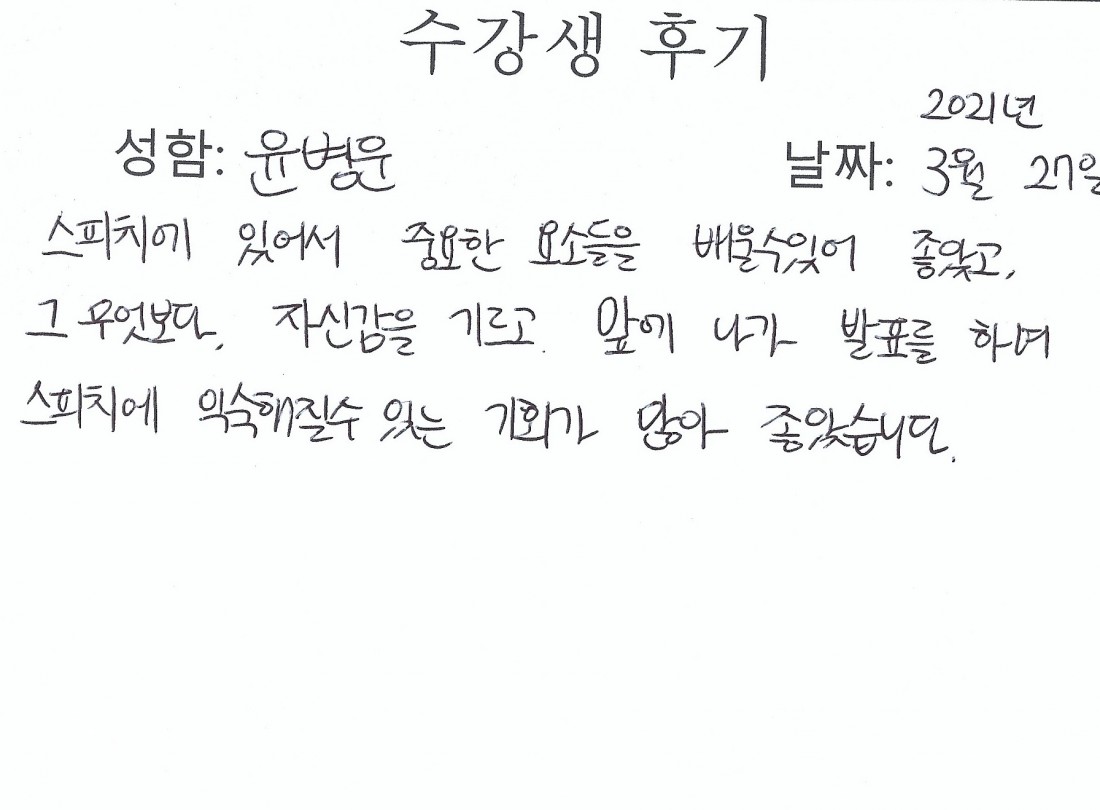 수강생 후기
2021년
성함: 윤병운 날짜: 3월 27일
스피치에 있어서 중요한 요소들을 배울수있어 좋았고,
그 무엇보다, 자신감을 기르고. 앞에 나가 발표를 하며
스피치에 익숙해질수 있는 기회가 많아 좋았습니다.